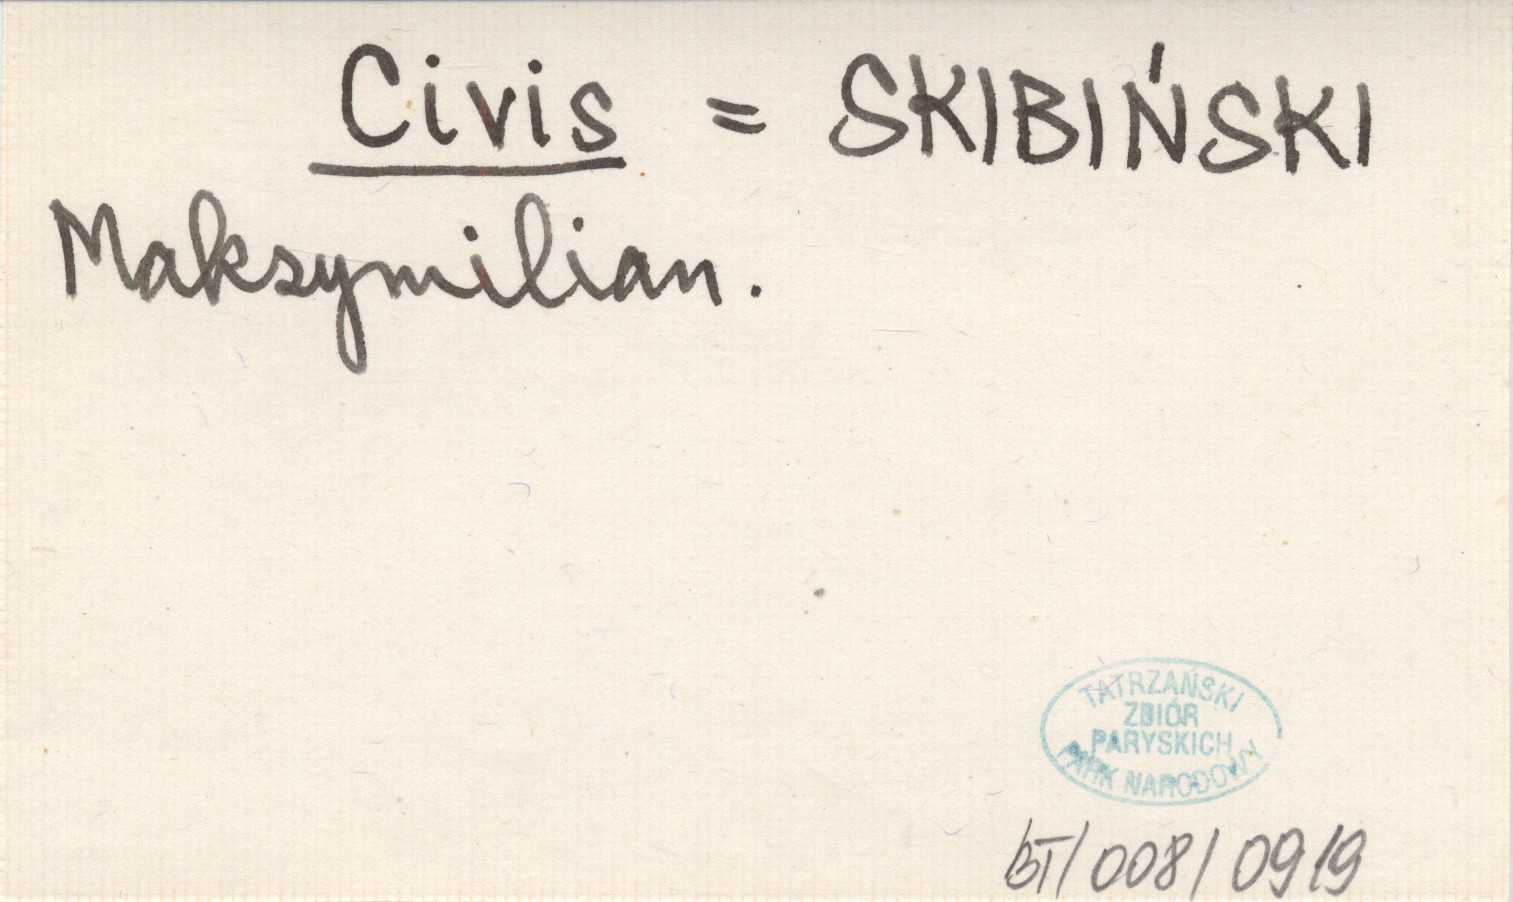 Civis = SKIBIŃSKI
Maksymilian.
TATRZAŃSKI
ZBIÓR
PARYSKICH
PARK NARODOWY
BT/008/0919